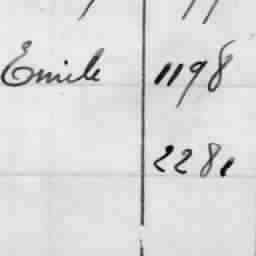 Emile 1198
2281